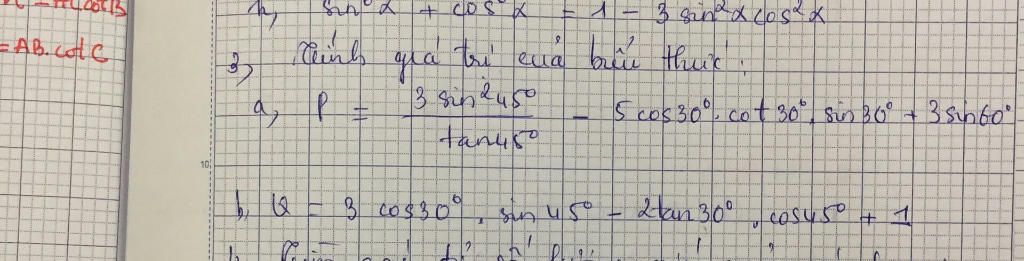 h, sin⁶α + cos⁶α = 1 - 3 sin²α cos²α
= AB. cot C
3, Tính giá trị của biểu thức:
a, P = 3 sin²45° / tan45° - 5 cos30°. cot 30°. sin 30° + 3 sin60°
10
b, Q = 3 cos30°. sin 45° - 2tan 30°. cos45° + 1